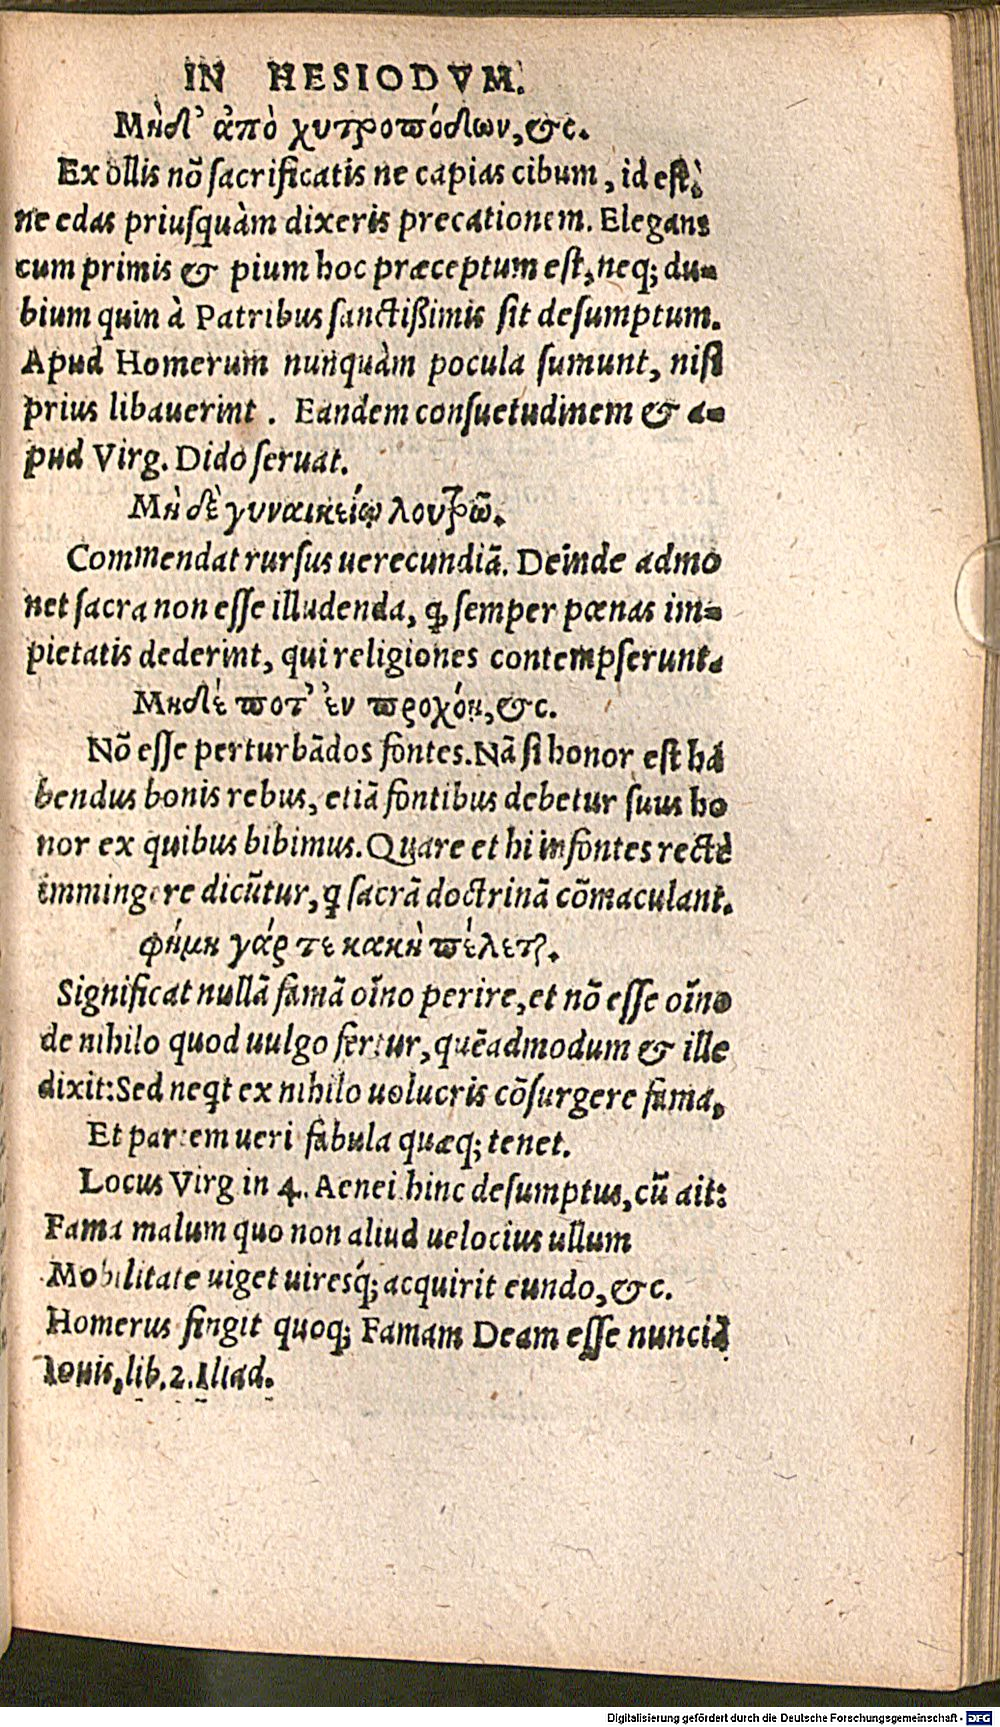 IN HESIODVM.
Μηδ' ἀπὸ χυτροπόδων, &c.
Ex ollis nõ sacrificatis ne capias cibum, id est,
ne edas priusquàm dixeris precationem. Elegans
cum primis & pium hoc præceptum est, neq; du-
bium quin à Patribus sanctißimis sit desumptum.
Apud Homerum nunquàm pocula sumunt, nisi
prius libauerint. Eandem consuetudinem & a-
pud Virg. Dido seruat.
Μηδὲ γυναικείῳ λουτρῶ.
Commendat rursus uerecundiã. Deinde admo
net sacra non esse illudenda, ꝙ semper pœnas im-
pietatis dederint, qui religiones contempserunt.
Μηδέ ποτ' ἐν προχόῃ, &c.
Nõ esse perturbãdos fontes. Nã si honor est ha
bendus bonis rebus, etiã fontibus debetur suus ho
nor ex quibus bibimus. Quare et hi in fontes rectè
immingere dicũtur, q̃ sacrã doctrinã cõmaculant.
φήμη γάρ τε κακὴ πέλεται.
Significat nullã famã oĩno perire, et nõ esse oĩno
de nihilo quod uulgo fertur, quẽadmodum & ille
dixit: Sed neq̃t ex nihilo uolucris cõsurgere fama,
Et partem ueri fabula quæq; tenet.
Locus Virg in 4. Aenei hinc desumptus, cũ ait:
Fama malum quo non aliud uelocius ullum
Mobilitate uiget uiresq́; acquirit eundo, &c.
Homerus fingit quoq; Famam Deam esse nunciã
Iouis, lib. 2. Iliad.
Digitalisierung gefördert durch die Deutsche Forschungsgemeinschaft - DFG